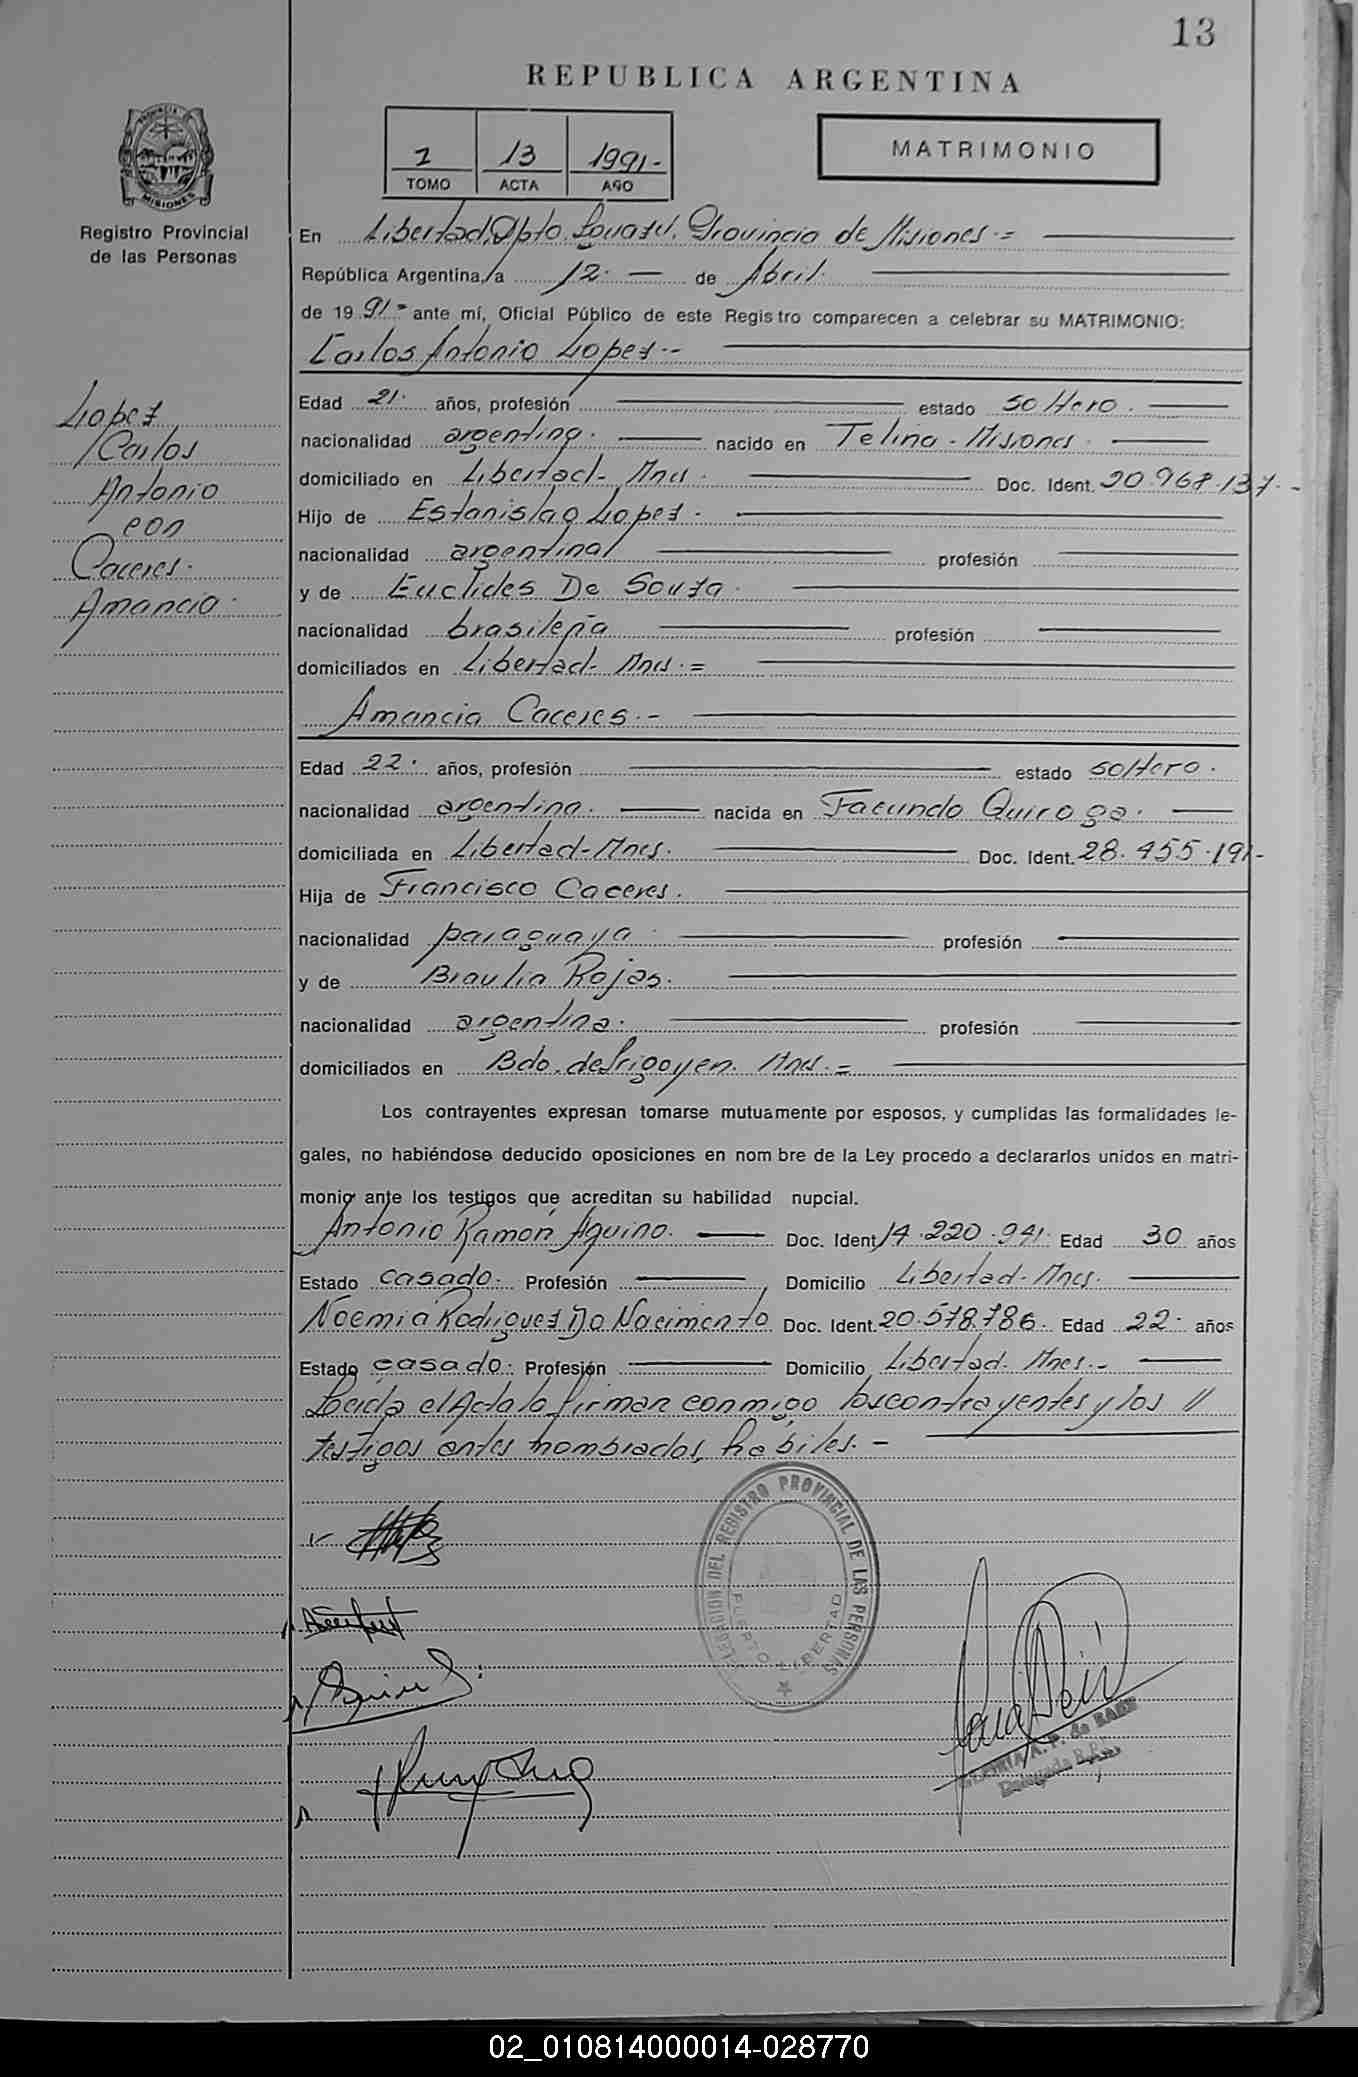 13
REPUBLICA ARGENTINA
PROVINCIA DE MISIONES
Registro Provincial
de las Personas
1 13 1991.-
TOMO ACTA AÑO
MATRIMONIO
En Libertad, Dpto. Iguazú. Provincia de Misiones.=
República Argentina, a 12.- de Abril.
de 1991- ante mí, Oficial Público de este Registro comparecen a celebrar su MATRIMONIO:
Carlos Antonio Lopez.-
Lopez
Carlos
Antonio
con
Caceres.
Amancia.
Edad 21. años, profesión estado soltero.
nacionalidad argentina. nacido en Telina - Misiones.
domiciliado en Libertad- Mnes. Doc. Ident. 20.968.137.-
Hijo de Estanislao Lopez.
nacionalidad argentina profesión
y de Euclides De Souza.
nacionalidad brasileña profesión
domiciliados en Libertad- Mnes.=
Amancia Caceres.-
Edad 22. años, profesión estado soltero.
nacionalidad argentina. nacida en Facundo Quiroga.
domiciliada en Libertad-Mnes. Doc. Ident. 28.455.191-
Hija de Francisco Caceres.
nacionalidad paraguaya profesión
y de Braulia Rojas.
nacionalidad argentina. profesión
domiciliados en Bdo. de Irigoyen. Mnes.=
Los contrayentes expresan tomarse mutuamente por esposos, y cumplidas las formalidades le-
gales, no habiéndose deducido oposiciones en nom bre de la Ley procedo a declararlos unidos en matri-
monio ante los testigos que acreditan su habilidad nupcial.
Antonio Ramón Aquino. Doc. Ident. 14.220.941. Edad 30 años
Estado casado. Profesión Domicilio Libertad-Mnes.
Noemia Rodriguez Do Nacimento Doc. Ident. 20.578.786. Edad 22. años
Estado casado. Profesión Domicilio Libertad. Mnes.-
Leida el Acta la firman conmigo los contrayentes y los //
testigos antes nombrados, habiles.-
DELEGACION DEL REGISTRO PROVINCIAL DE LAS PERSONAS
PUERTO LIBERTAD
A. P. de BAEZ
Delegada R.P.
02_010814000014-028770